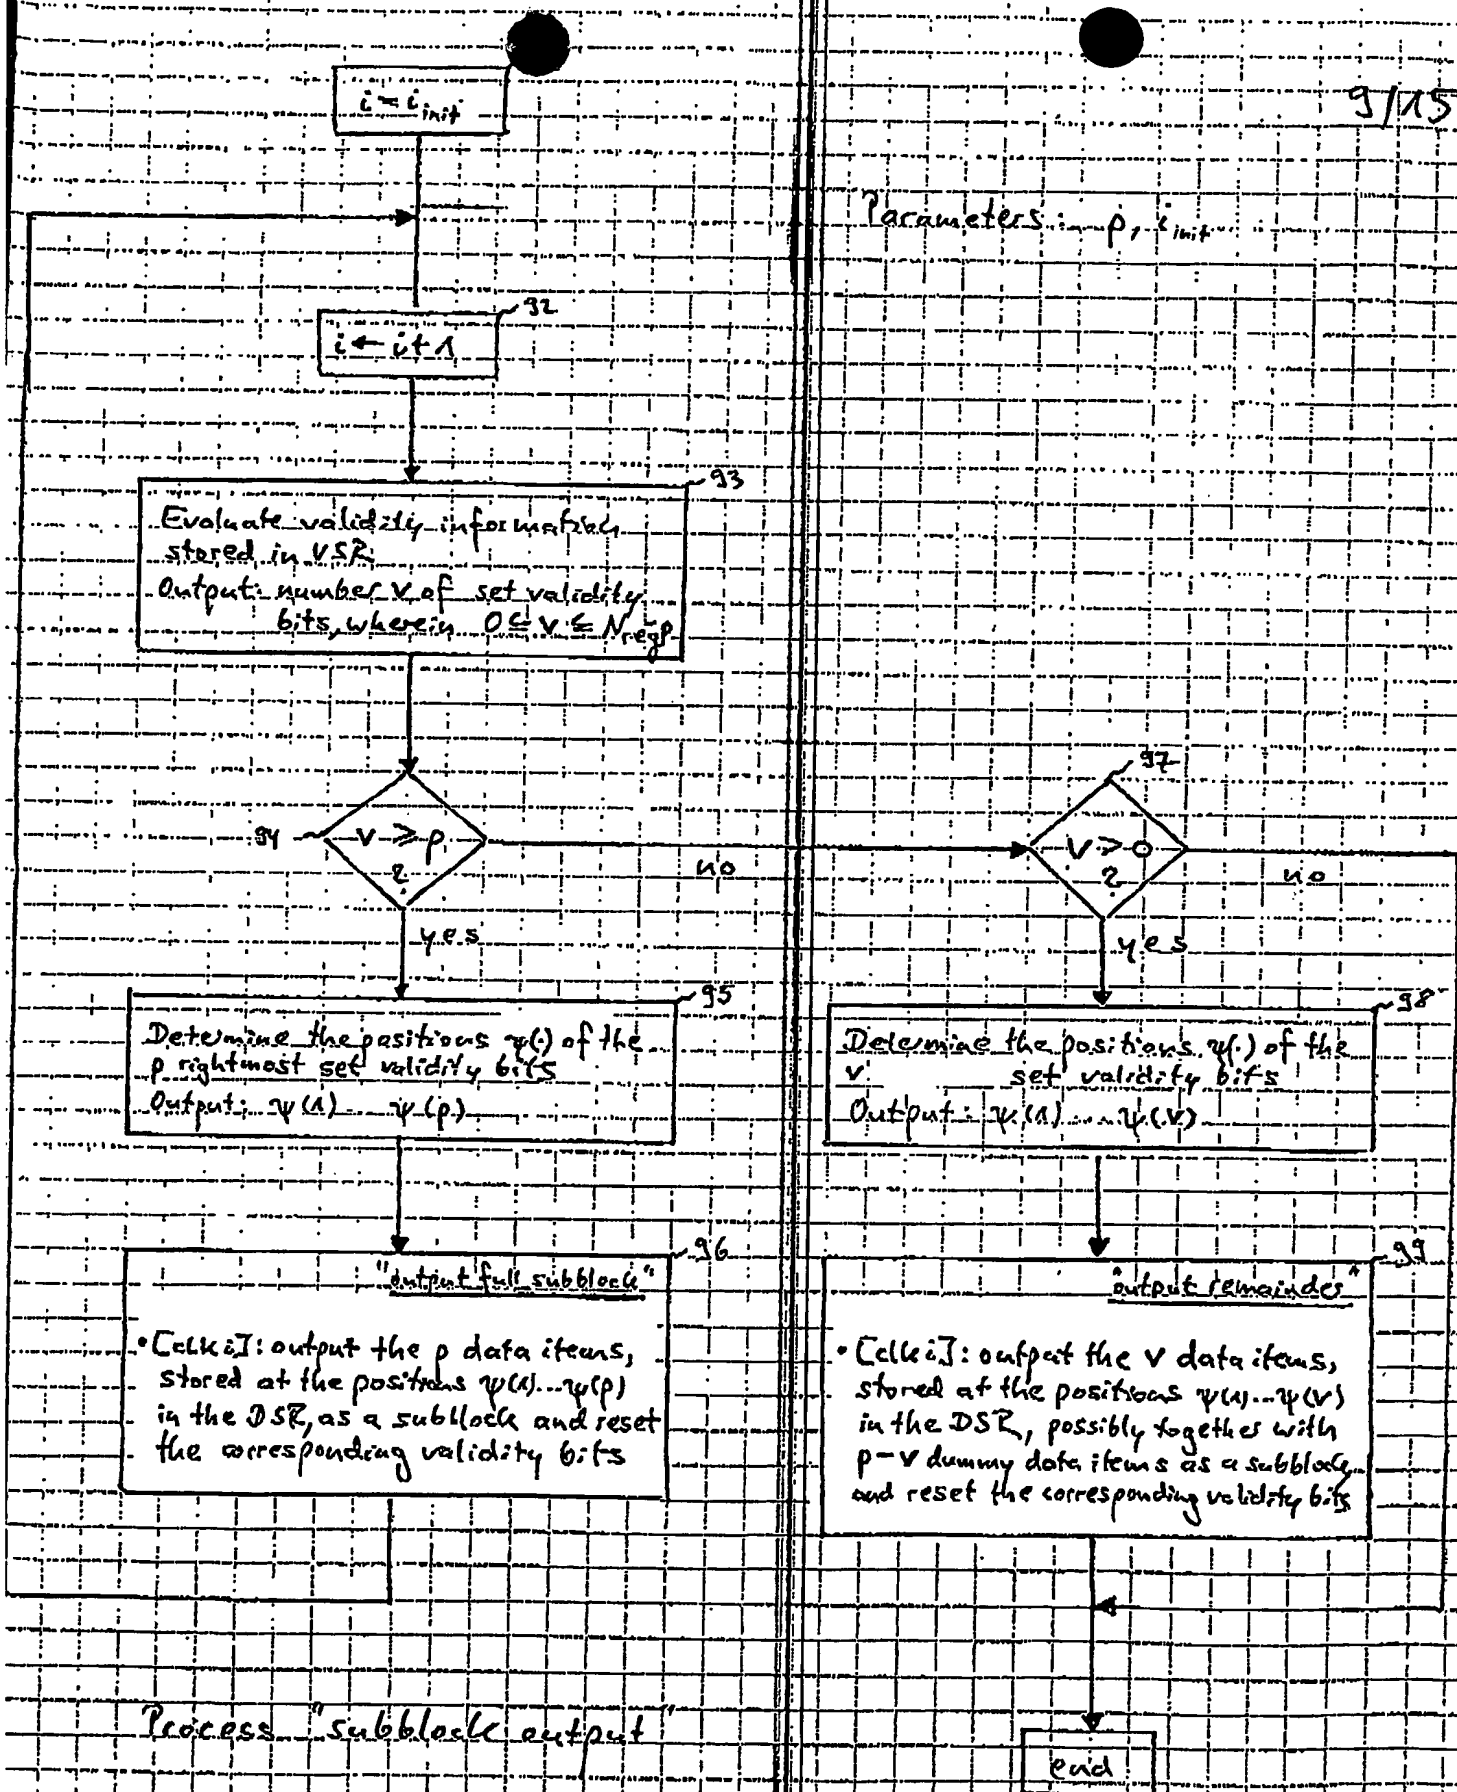 i = i_init
9/15
Parameters: p, i_init
92
i ← i+1
93
Evaluate validity information
stored in VSR
Output: number v of set validity
bits, wherein 0 ≤ v ≤ N_regp
94
v ≥ p
?
no
yes
97
v > 0
?
no
yes
95
Determine the positions ψ(·) of the
p rightmost set validity bits
Output: ψ(1) ... ψ(p)
98
Determine the positions ψ(·) of the
v set validity bits
Output: ψ(1) ... ψ(v)
96
"output full subblock"
• [clk i]: output the p data items,
stored at the positions ψ(1)...ψ(p)
in the DSR, as a subblock and reset
the corresponding validity bits
99
"output remainder"
• [clk i]: output the v data items,
stored at the positions ψ(1)...ψ(v)
in the DSR, possibly together with
p-v dummy data items as a subblock
and reset the corresponding validity bits
Process "subblock output"
end